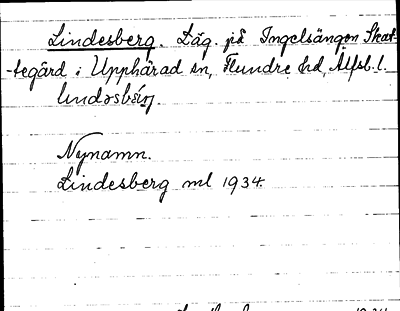 Lindesberg. Låg. på Ingelsängen Skat-
-tegård i Upphärad sn, Flundre hd, Älfsb. l.
Nynamn.
Lindesberg ml 1934.